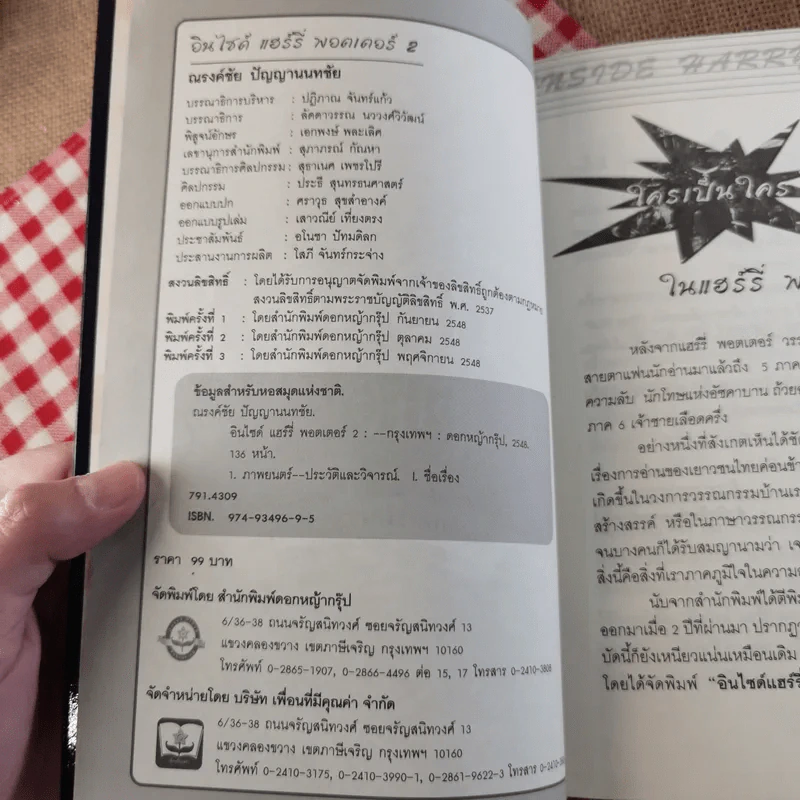 อินไซด์ แฮร์รี่ พอตเตอร์ 2
ณรงค์ชัย ปัญญานนทชัย
บรรณาธิการบริหาร : ปฏิภาณ จันทร์แก้ว
บรรณาธิการ : ลัดดาวรรณ นววงศ์วิวัฒน์
พิสูจน์อักษร : เอกพงษ์ พละเลิศ
เลขานุการสำนักพิมพ์ : สุภาภรณ์ กัณหา
บรรณาธิการศิลปกรรม : สุธาเนศ เพชรโปรี
ศิลปกรรม : ประธี สุนทรธนศาสตร์
ออกแบบปก : ศราวุธ สุขสำอางค์
ออกแบบรูปเล่ม : เสาวณีย์ เที่ยงตรง
ประชาสัมพันธ์ : อโนชา ปัทมดิลก
ประสานงานการผลิต : โสภี จันทร์กระจ่าง
สงวนลิขสิทธิ์ : โดยได้รับการอนุญาตจัดพิมพ์จากเจ้าของลิขสิทธิ์ถูกต้องตามกฎหมาย
สงวนลิขสิทธิ์ตามพระราชบัญญัติลิขสิทธิ์ พ.ศ. 2537
พิมพ์ครั้งที่ 1 : โดยสำนักพิมพ์ดอกหญ้ากรุ๊ป กันยายน 2548
พิมพ์ครั้งที่ 2 : โดยสำนักพิมพ์ดอกหญ้ากรุ๊ป ตุลาคม 2548
พิมพ์ครั้งที่ 3 : โดยสำนักพิมพ์ดอกหญ้ากรุ๊ป พฤศจิกายน 2548
ข้อมูลสำหรับหอสมุดแห่งชาติ.
ณรงค์ชัย ปัญญานนทชัย.
อินไซด์ แฮร์รี่ พอตเตอร์ 2 : --กรุงเทพฯ : ดอกหญ้ากรุ๊ป, 2546.
136 หน้า.
1. ภาพยนตร์--ประวัติและวิจารณ์. I. ชื่อเรื่อง
791.4309
ISBN. 974-93496-9-5
ราคา 99 บาท
จัดพิมพ์โดย สำนักพิมพ์ดอกหญ้ากรุ๊ป
6/36-38 ถนนจรัญสนิทวงศ์ ซอยจรัญสนิทวงศ์ 13
แขวงคลองขวาง เขตภาษีเจริญ กรุงเทพฯ 10160
โทรศัพท์ 0-2865-1907, 0-2866-4496 ต่อ 15, 17 โทรสาร 0-2410-3808
จัดจำหน่ายโดย บริษัท เพื่อนที่มีคุณค่า จำกัด
6/36-38 ถนนจรัญสนิทวงศ์ ซอยจรัญสนิทวงศ์ 13
แขวงคลองขวาง เขตภาษีเจริญ กรุงเทพฯ 10160
โทรศัพท์ 0-2410-3175, 0-2410-3990-1, 0-2861-9622-3 โทรสาร
INSIDE HARR
ใครเป็นใคร
ในแฮร์รี่ พ
หลังจากแฮร์รี่ พอตเตอร์ วรร
สายตาแฟนนักอ่านมาแล้วถึง 5 ภาค
ความลับ นักโทษแห่งอัซคาบาน ถ้วย
ภาค 6 เจ้าชายเลือดครึ่ง
อย่างหนึ่งที่สังเกตเห็นได้ชัด
เรื่องการอ่านของเยาวชนไทยค่อนข้า
เกิดขึ้นในวงการวรรณกรรมบ้านเร
สร้างสรรค์ หรือในภาษาวรรณกรร
จนบางคนก็ได้รับสมญานามว่า เจ
สิ่งนี้คือสิ่งที่เราภาคภูมิใจในความ
นับจากสำนักพิมพ์ได้ตีพิม
ออกมาเมื่อ 2 ปีที่ผ่านมา ปรากฏว
บัดนี้ก็ยังเหนียวแน่นเหมือนเดิม
โดยได้จัดพิมพ์ “อินไซด์แฮร์รี่